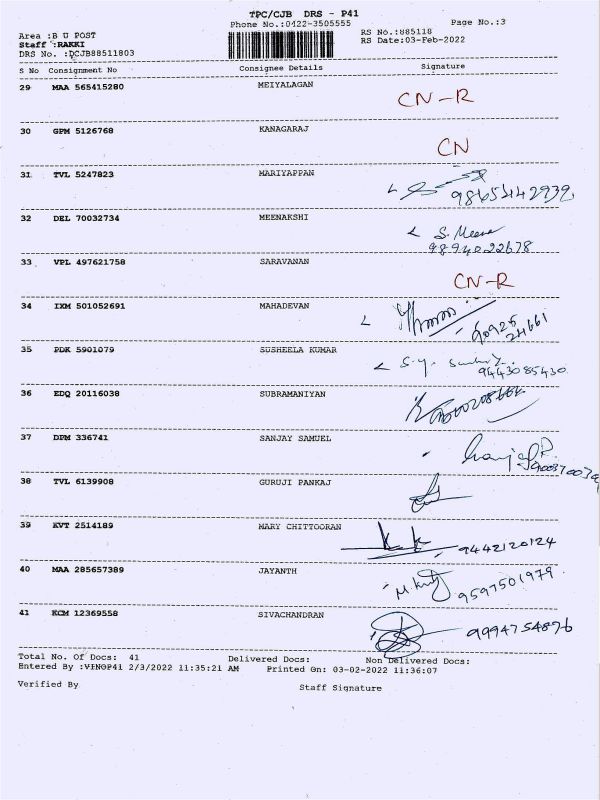 TPC/CJB DRS - P41
Phone No.:0422-3505555
Page No.:3
Area :B U POST
Staff :RAKKI
DRS No. :DCJB88511803
RS No.:885118
RS Date:03-Feb-2022
S No Consignment No Consignee Details Signature
29 MAA 565415280 MEIYALAGAN CN-R
30 GPM 5126768 KANAGARAJ CN
31 TVL 5247823 MARIYAPPAN
32 DEL 70032734 MEENAKSHI S. Meena
9894022678
33 VPL 497621758 SARAVANAN CN-R
34 IXM 501052691 MAHADEVAN
35 PDK 5901079 SUSHEELA KUMAR
9443085430
36 EDQ 20116038 SUBRAMANIYAN
37 DPM 336741 SANJAY SAMUEL
38 TVL 6139908 GURUJI PANKAJ
39 KVT 2514189 MARY CHITTOORAN
9442120124
40 MAA 285657389 JAYANTH
9597501979
41 KCM 12369558 SIVACHANDRAN
9994754876
Total No. Of Docs: 41 Delivered Docs: Non Delivered Docs:
Entered By :VINGP41 2/3/2022 11:35:21 AM Printed On: 03-02-2022 11:36:07
Verified By Staff Signature